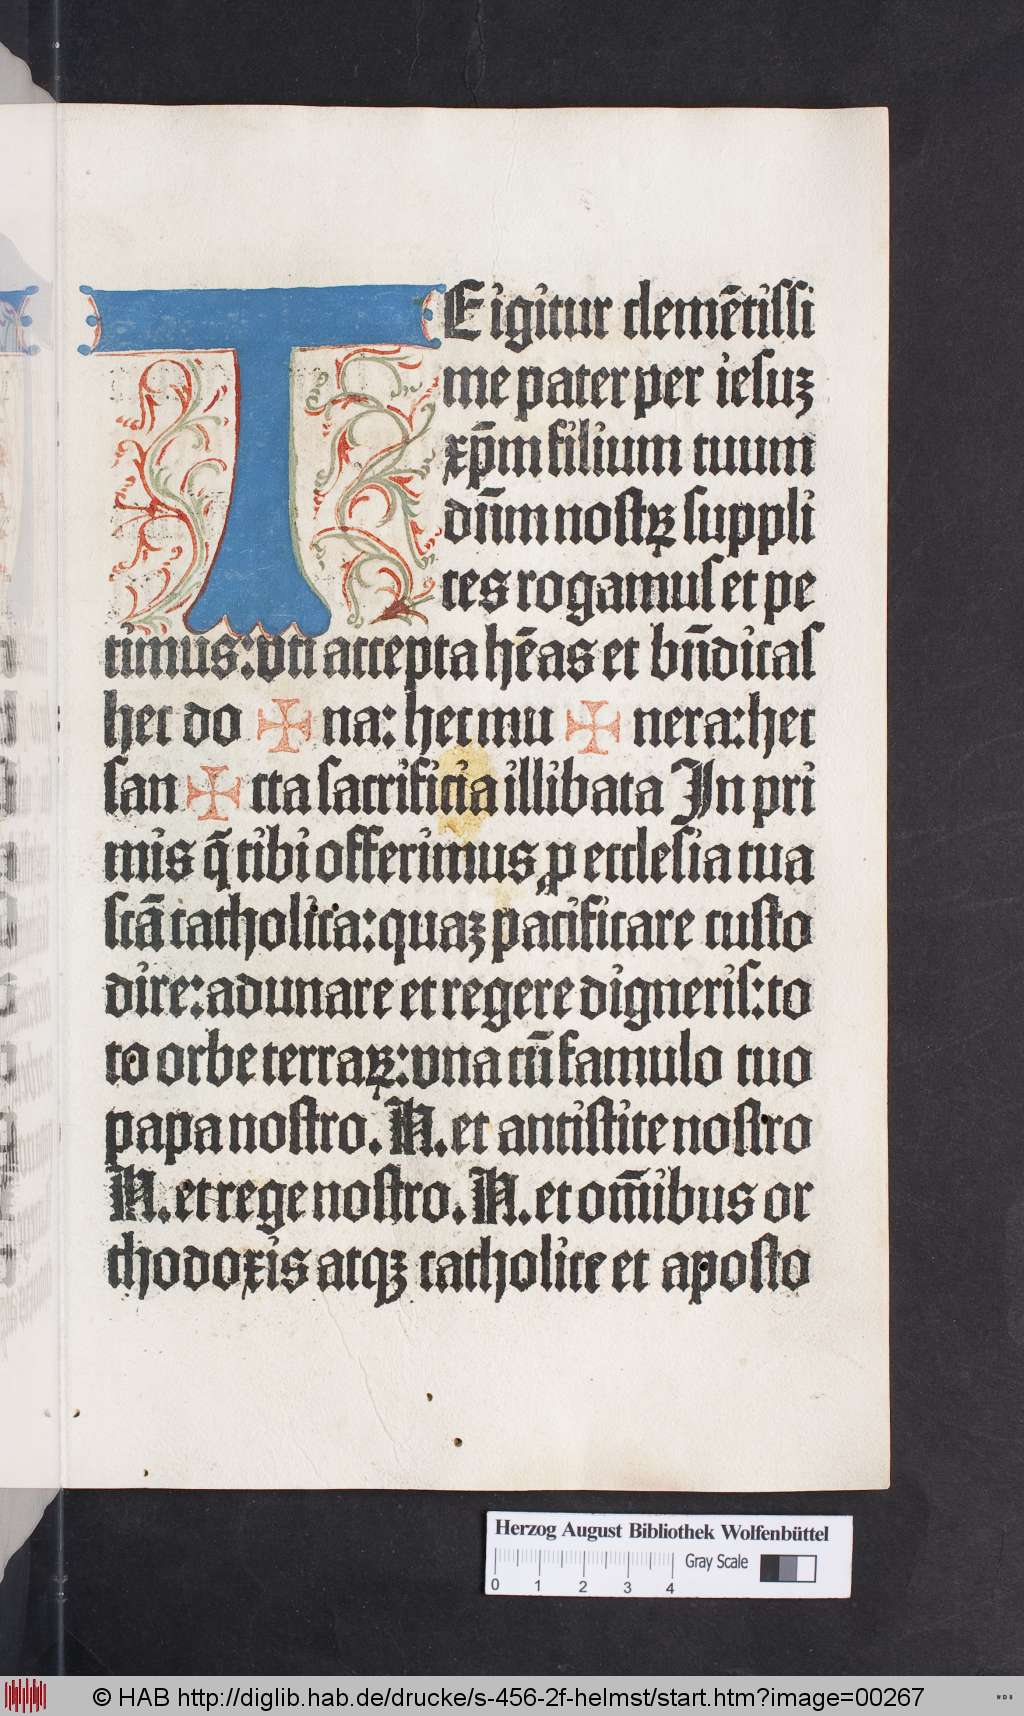 TEigitur clemētissi
me pater per iesuꝫ
xp̄m filium tuum
dn̄m nostꝝ suppli
ces rogamus et pe
timus: vti accepta hēas et bn̄dicas
hec do ✠ na: hec mu ✠ nera: hec
san ✠ cta sacrificia illibata In pri
mis q̄ tibi offerimus ꝓ ecclesia tua
scā catholica: quaꝫ pacificare custo
dire: adunare et regere digneris: to
to orbe terraꝝ: vna cū famulo tuo
papa nostro. N. et antistite nostro
N. et rege nostro. N. et om̄ibus or
thodoxis atqꝫ catholice et aposto
Herzog August Bibliothek Wolfenbüttel
0 1 2 3 4 Gray Scale
© HAB http://diglib.hab.de/drucke/s-456-2f-helmst/start.htm?image=00267